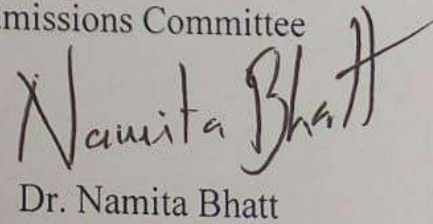 missions Committee
Namita Bhatt
Dr. Namita Bhatt